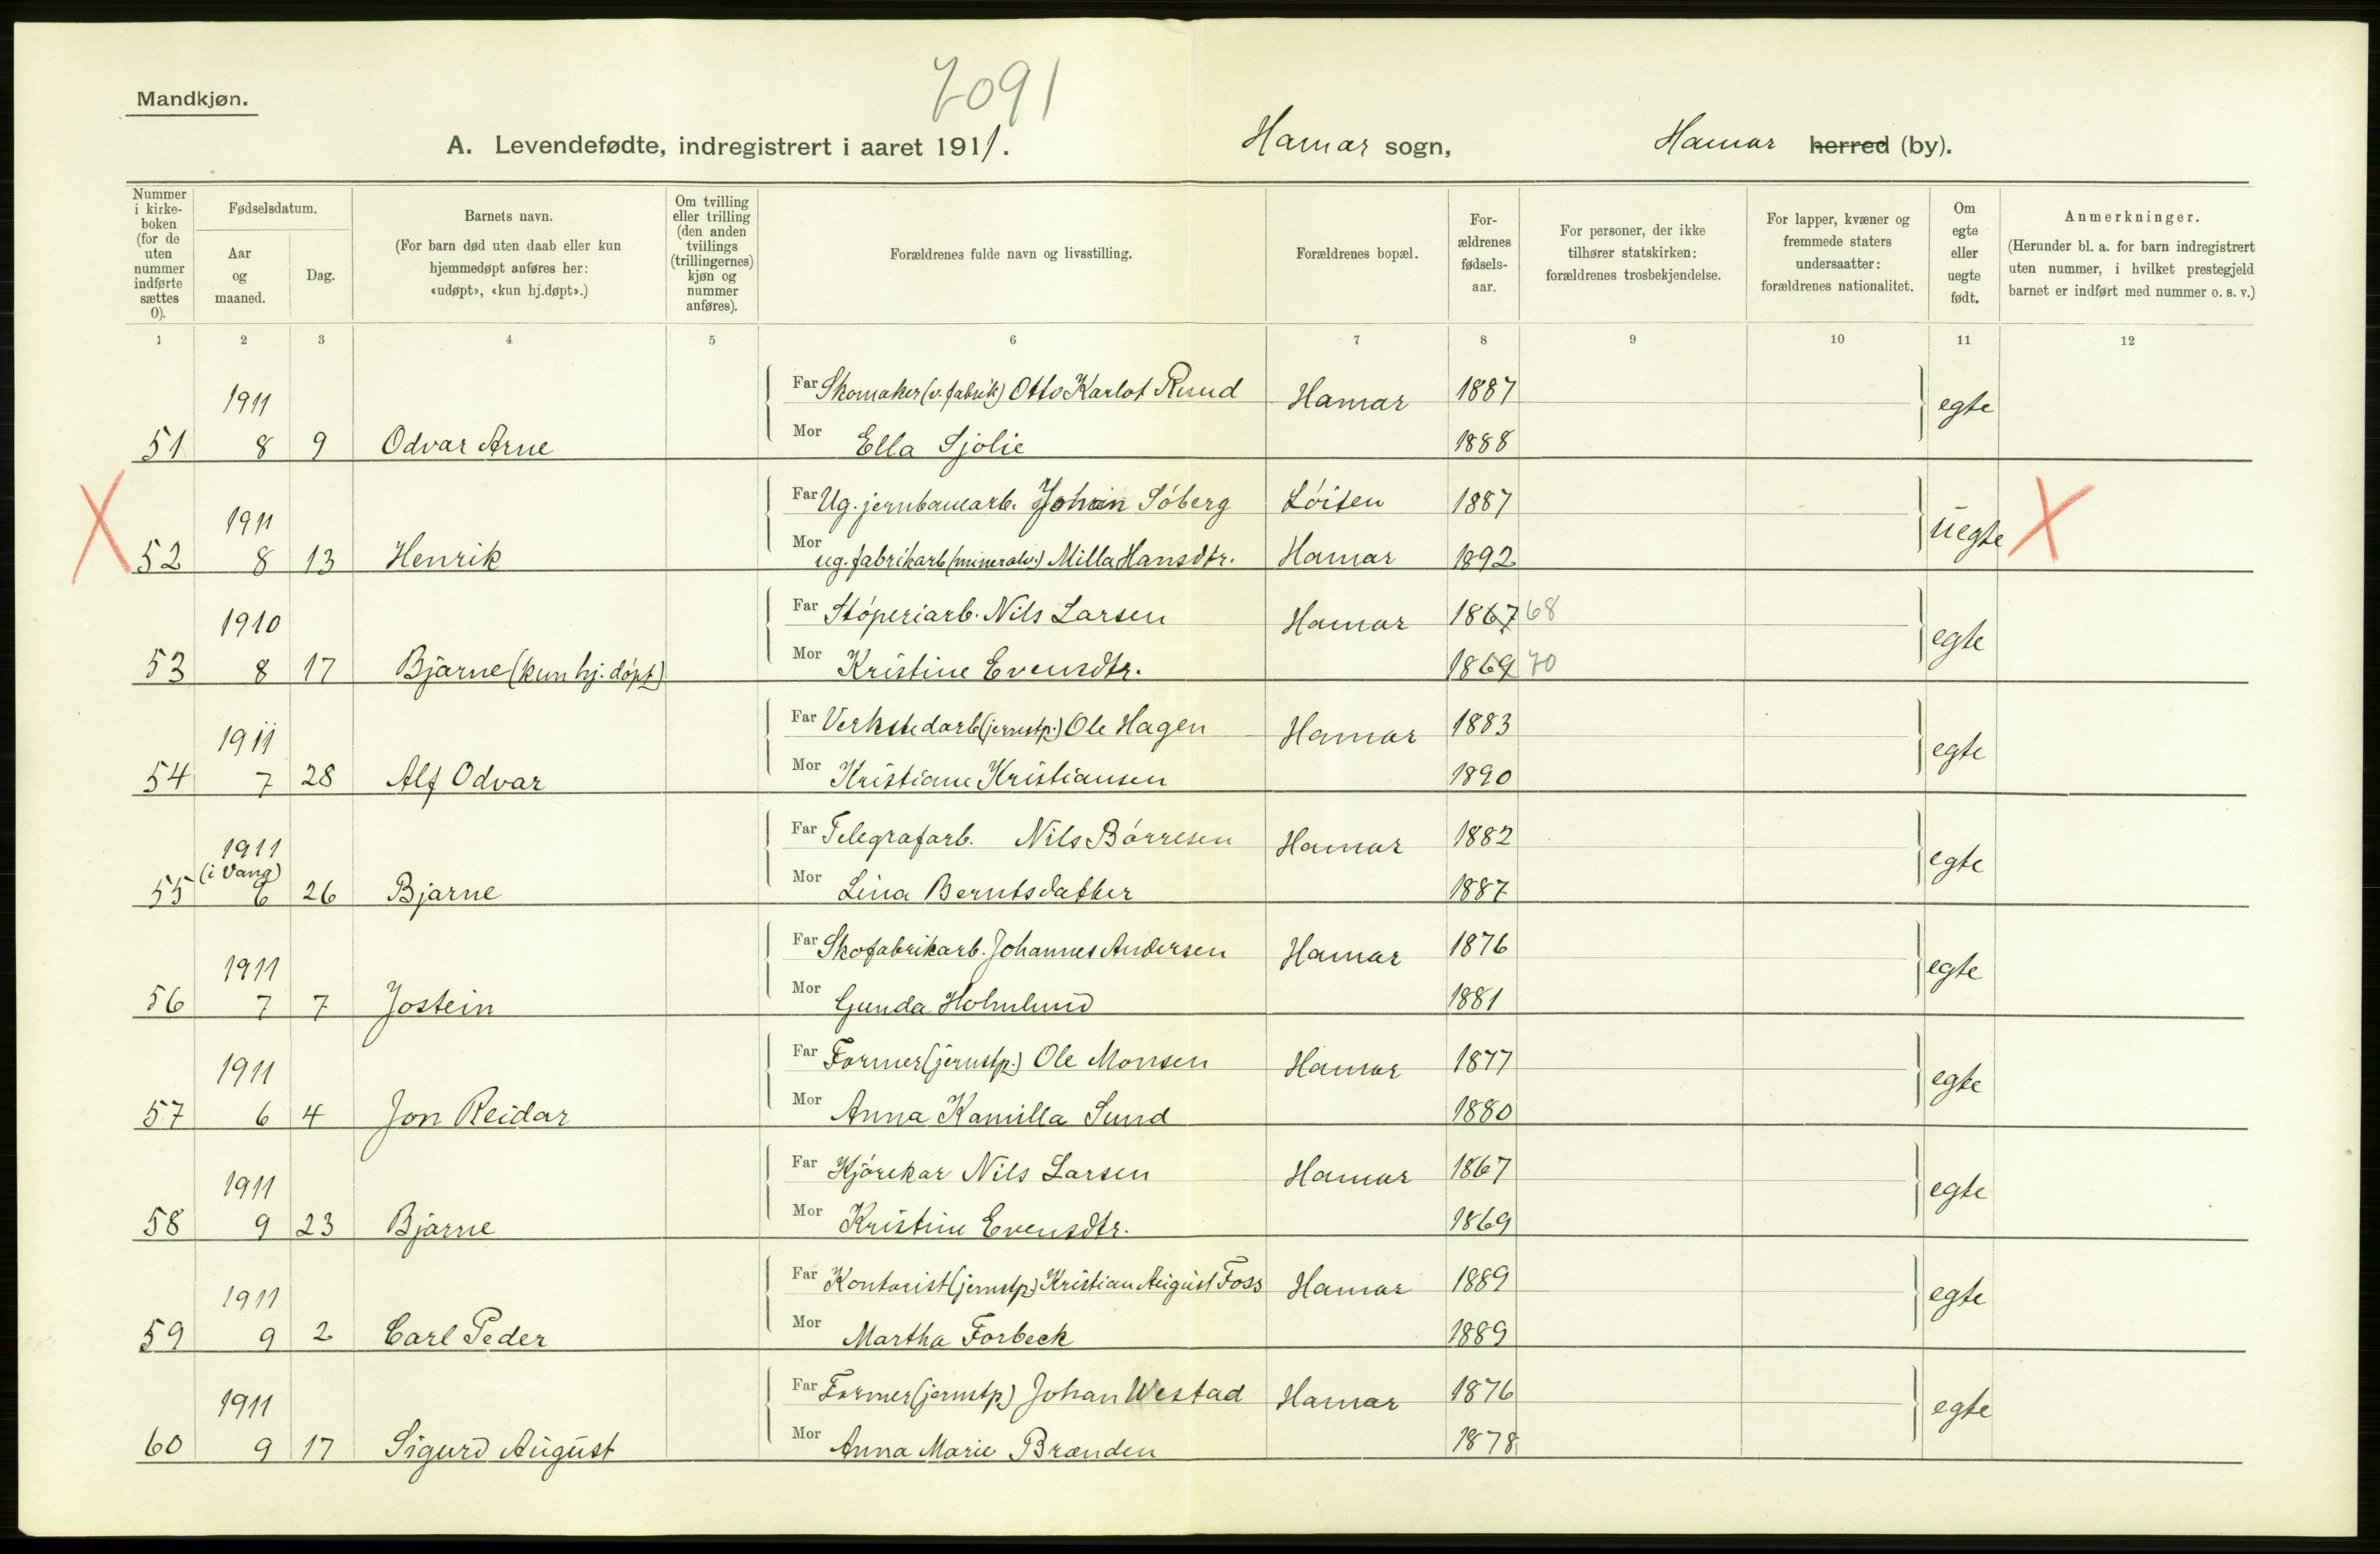 7091
Mandkjøn.
A. Levendefødte, indregistrert i aaret 1911. Hamar sogn, Hamar herred (by).
Nummer i kirke-boken (for de uten nummer indførte sættes 0).
Fødselsdatum.
Aar og maaned.
Dag.
Barnets navn.
(For barn død uten daab eller kun hjemmedøpt anføres her: «udøpt», «kun hj.døpt».)
Om tvilling eller trilling (den anden tvillings (trillingernes) kjøn og nummer anføres).
Forældrenes fulde navn og livsstilling.
Forældrenes bopæl.
For-ældrenes fødsels-aar.
For personer, der ikke tilhører statskirken: forældrenes trosbekjendelse.
For lapper, kvæner og fremmede staters undersaatter: forældrenes nationalitet.
Om egte eller uegte født.
Anmerkninger.
(Herunder bl. a. for barn indregistrert uten nummer, i hvilket prestegjeld barnet er indført med nummer o. s. v.)
1 2 3 4 5 6 7 8 9 10 11 12
1911 Far Skomaker (v. fabrik) Otto Karlot Ruud Hamar 1887 egte
51 8 9 Odvar Arne Mor Ella Sjølie 1888
X 1911 Far Ug. jernbanearb. Johan Søberg Løiten 1887 uegte X
52 8 13 Henrik Mor ug. fabrikarb (mineralv.) Milla Hansdtr. Hamar 1892
1910 Far Støperiarb. Nils Larsen Hamar 1867 68 egte
53 8 17 Bjarne (kun hj. døpt) Mor Kristine Evensdtr. 1869 70
1911 Far Verkstedarb (jernstp.) Ole Hagen Hamar 1883 egte
54 7 28 Alf Odvar Mor Kristiane Kristiansen 1890
1911 Far Telegrafarb. Nils Børresen Hamar 1882 egte
(i Vang)
55 6 26 Bjarne Mor Lina Berntsdatter 1887
1911 Far Skofabrikarb. Johannes Andersen Hamar 1876 egte
56 7 7 Jostein Mor Gunda Holmlund 1881
1911 Far Former (jernstp.) Ole Monsen Hamar 1877 egte
57 6 4 Jon Reidar Mor Anna Kamilla Sund 1880
1911 Far Kjørekar Nils Larsen Hamar 1867 egte
58 9 23 Bjarne Mor Kristine Evensdtr. 1869
1911 Far Kontorist (jernstp.) Kristian August Foss Hamar 1889 egte
59 9 2 Carl Peder Mor Martha Forbeck 1889
1911 Far Former (jernstp.) Johan Westad Hamar 1876 egte
60 9 17 Sigurd August Mor Anna Marie Brænden 1878